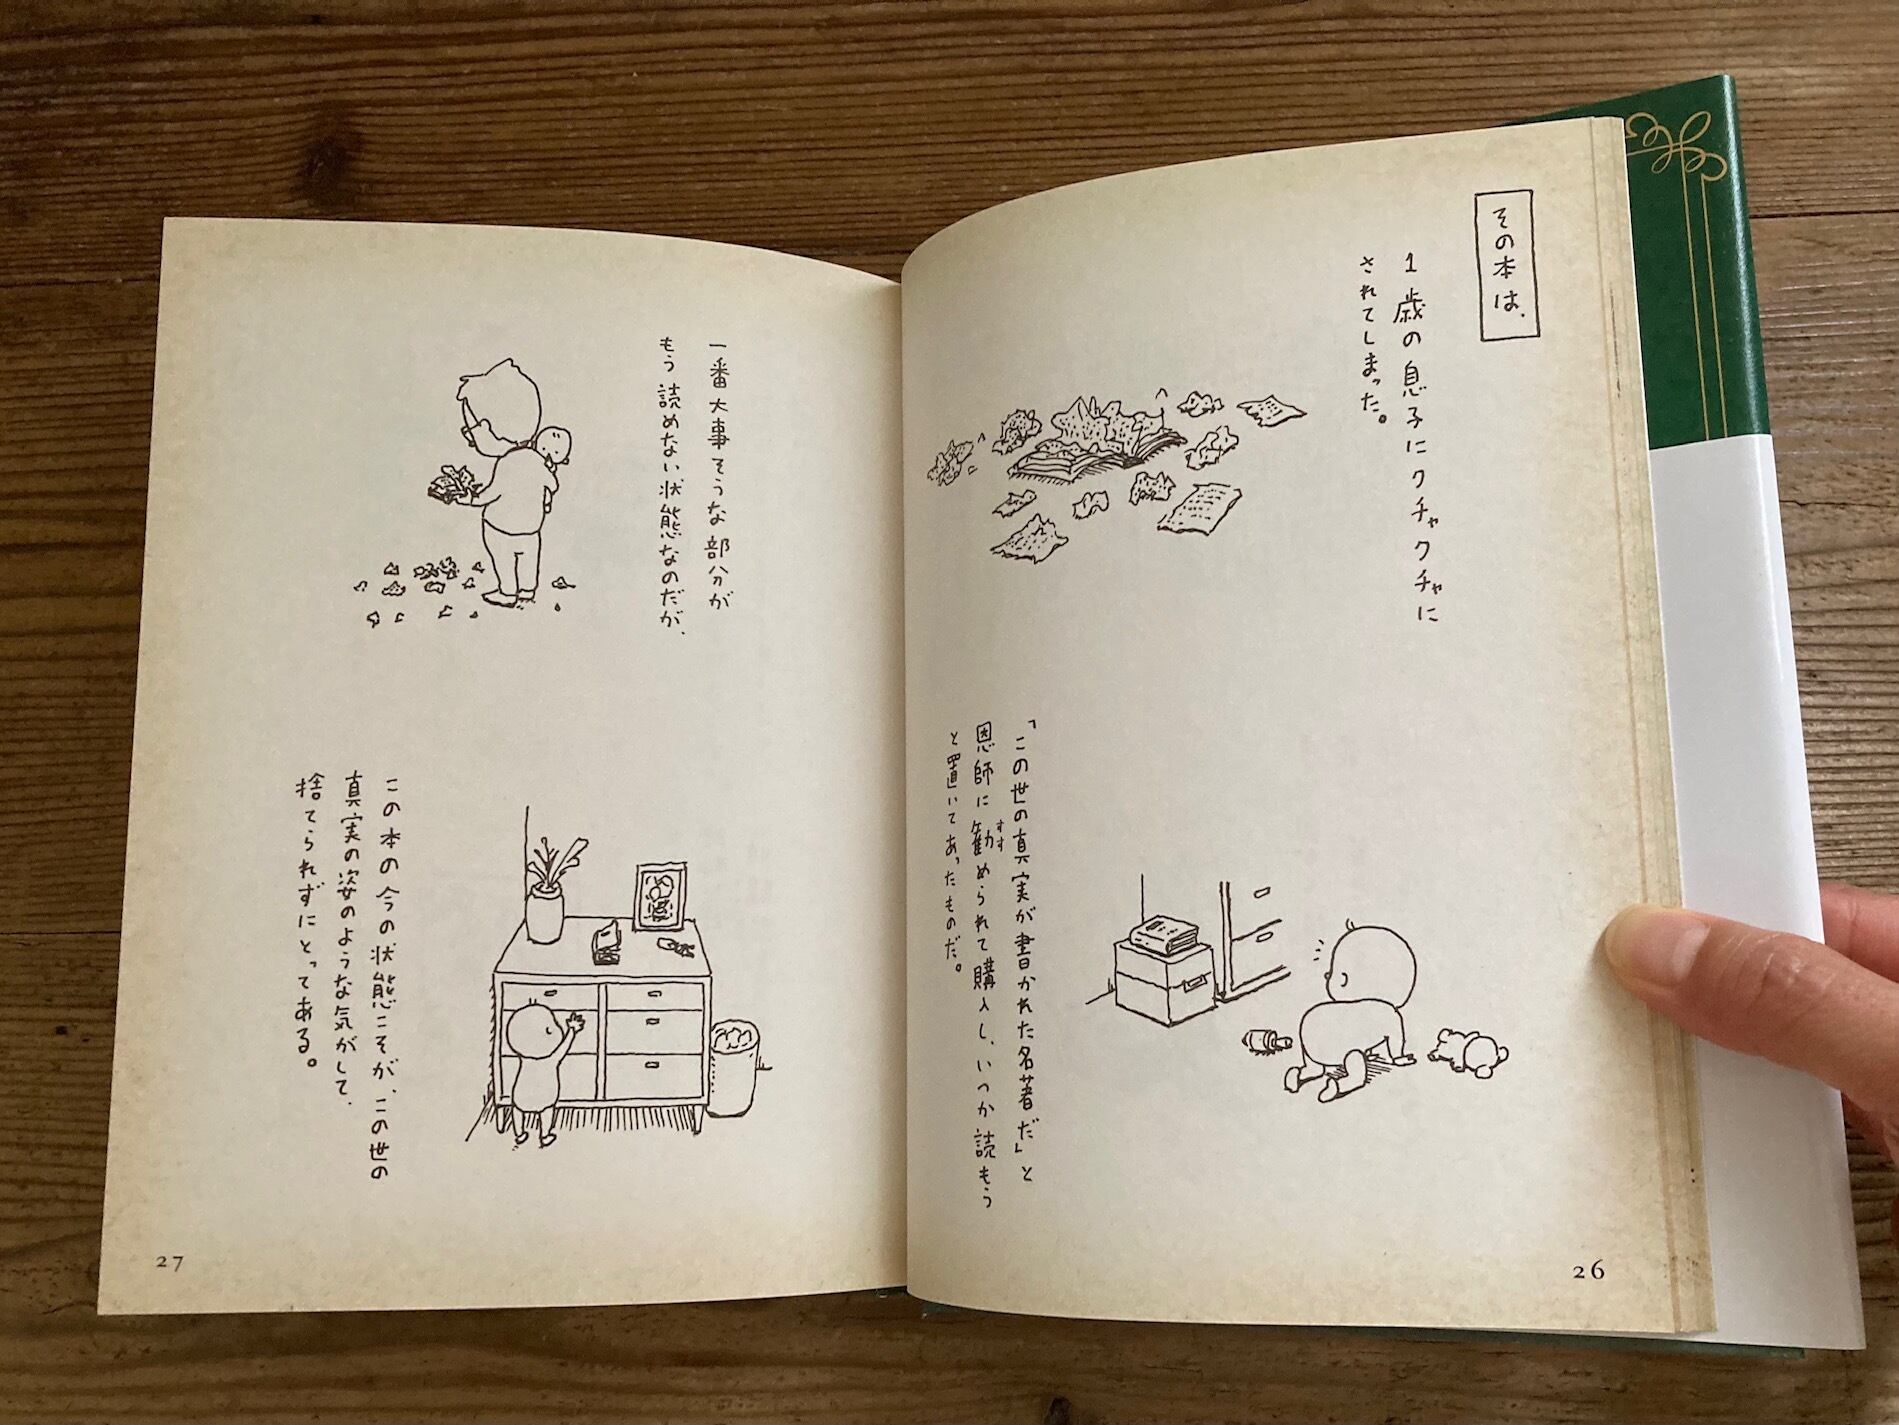 その本は、
1歳の息子にクチャクチャに
されてしまった。
「この世の真実が書かれた名著だ」と
恩師に勧められて購入し、いつか読もう
すす
と置いてあったものだ。
26
一番大事そうな部分が
もう読めない状態なのだが、
この本の今の状態こそが、この世の
真実の姿のような気がして、
捨てられずにとってある。
27